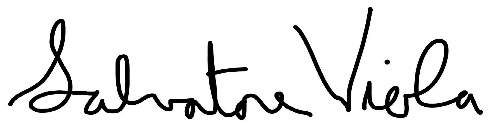 Salvatore Viola